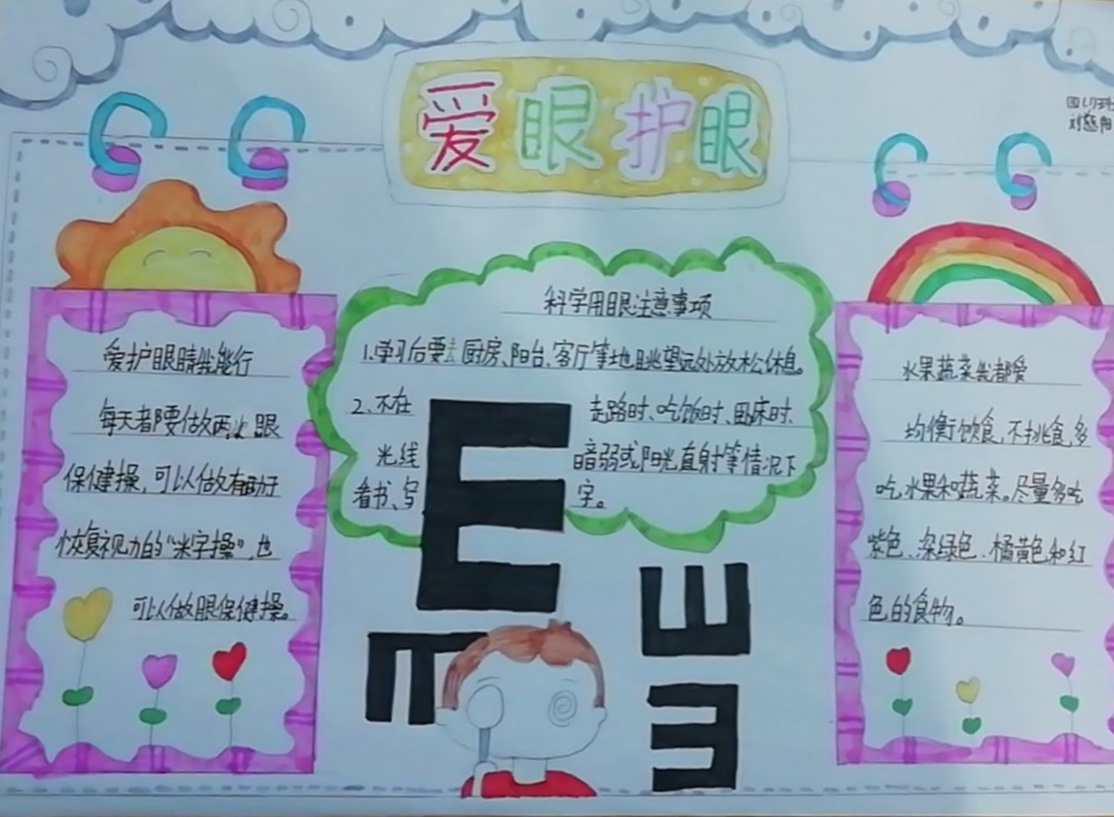 爱眼护眼
爱护眼睛我能行
每天都要做两次眼
保健操,可以做有助于
恢复视力的“米字操”,也
可以做眼保健操。
科学用眼注意事项
1.学习后要去厨房、阳台、客厅等地且眺望远处放松休息。
2、不在 走路时、吃饭时、卧床时、
光线 暗弱或阳光直射等情况下
看书、写 字。
E
E
E
E
水果蔬菜我都爱
均衡饮食,不挑食,多
吃水果和蔬菜。尽量多吃
紫色、深绿色、橘黄色和红
色的食物。